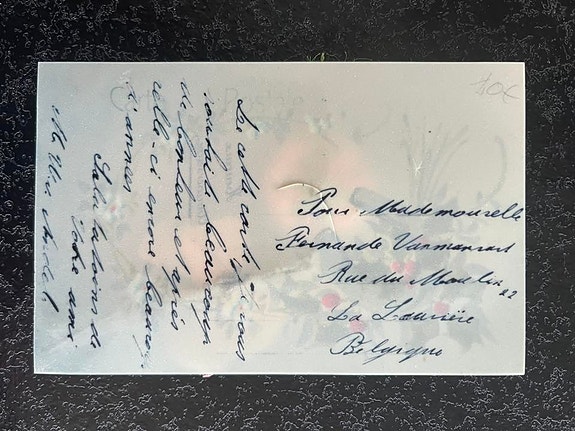 De cette carte je vous
souhait beaucoup
de bonheur et après
celle-ci encore beaucoup
d'annees
Salutations de
votre ami
Pour Mademoiselle
Fernande
Rue du Moulin 22
La Louvière
Belgique
10€